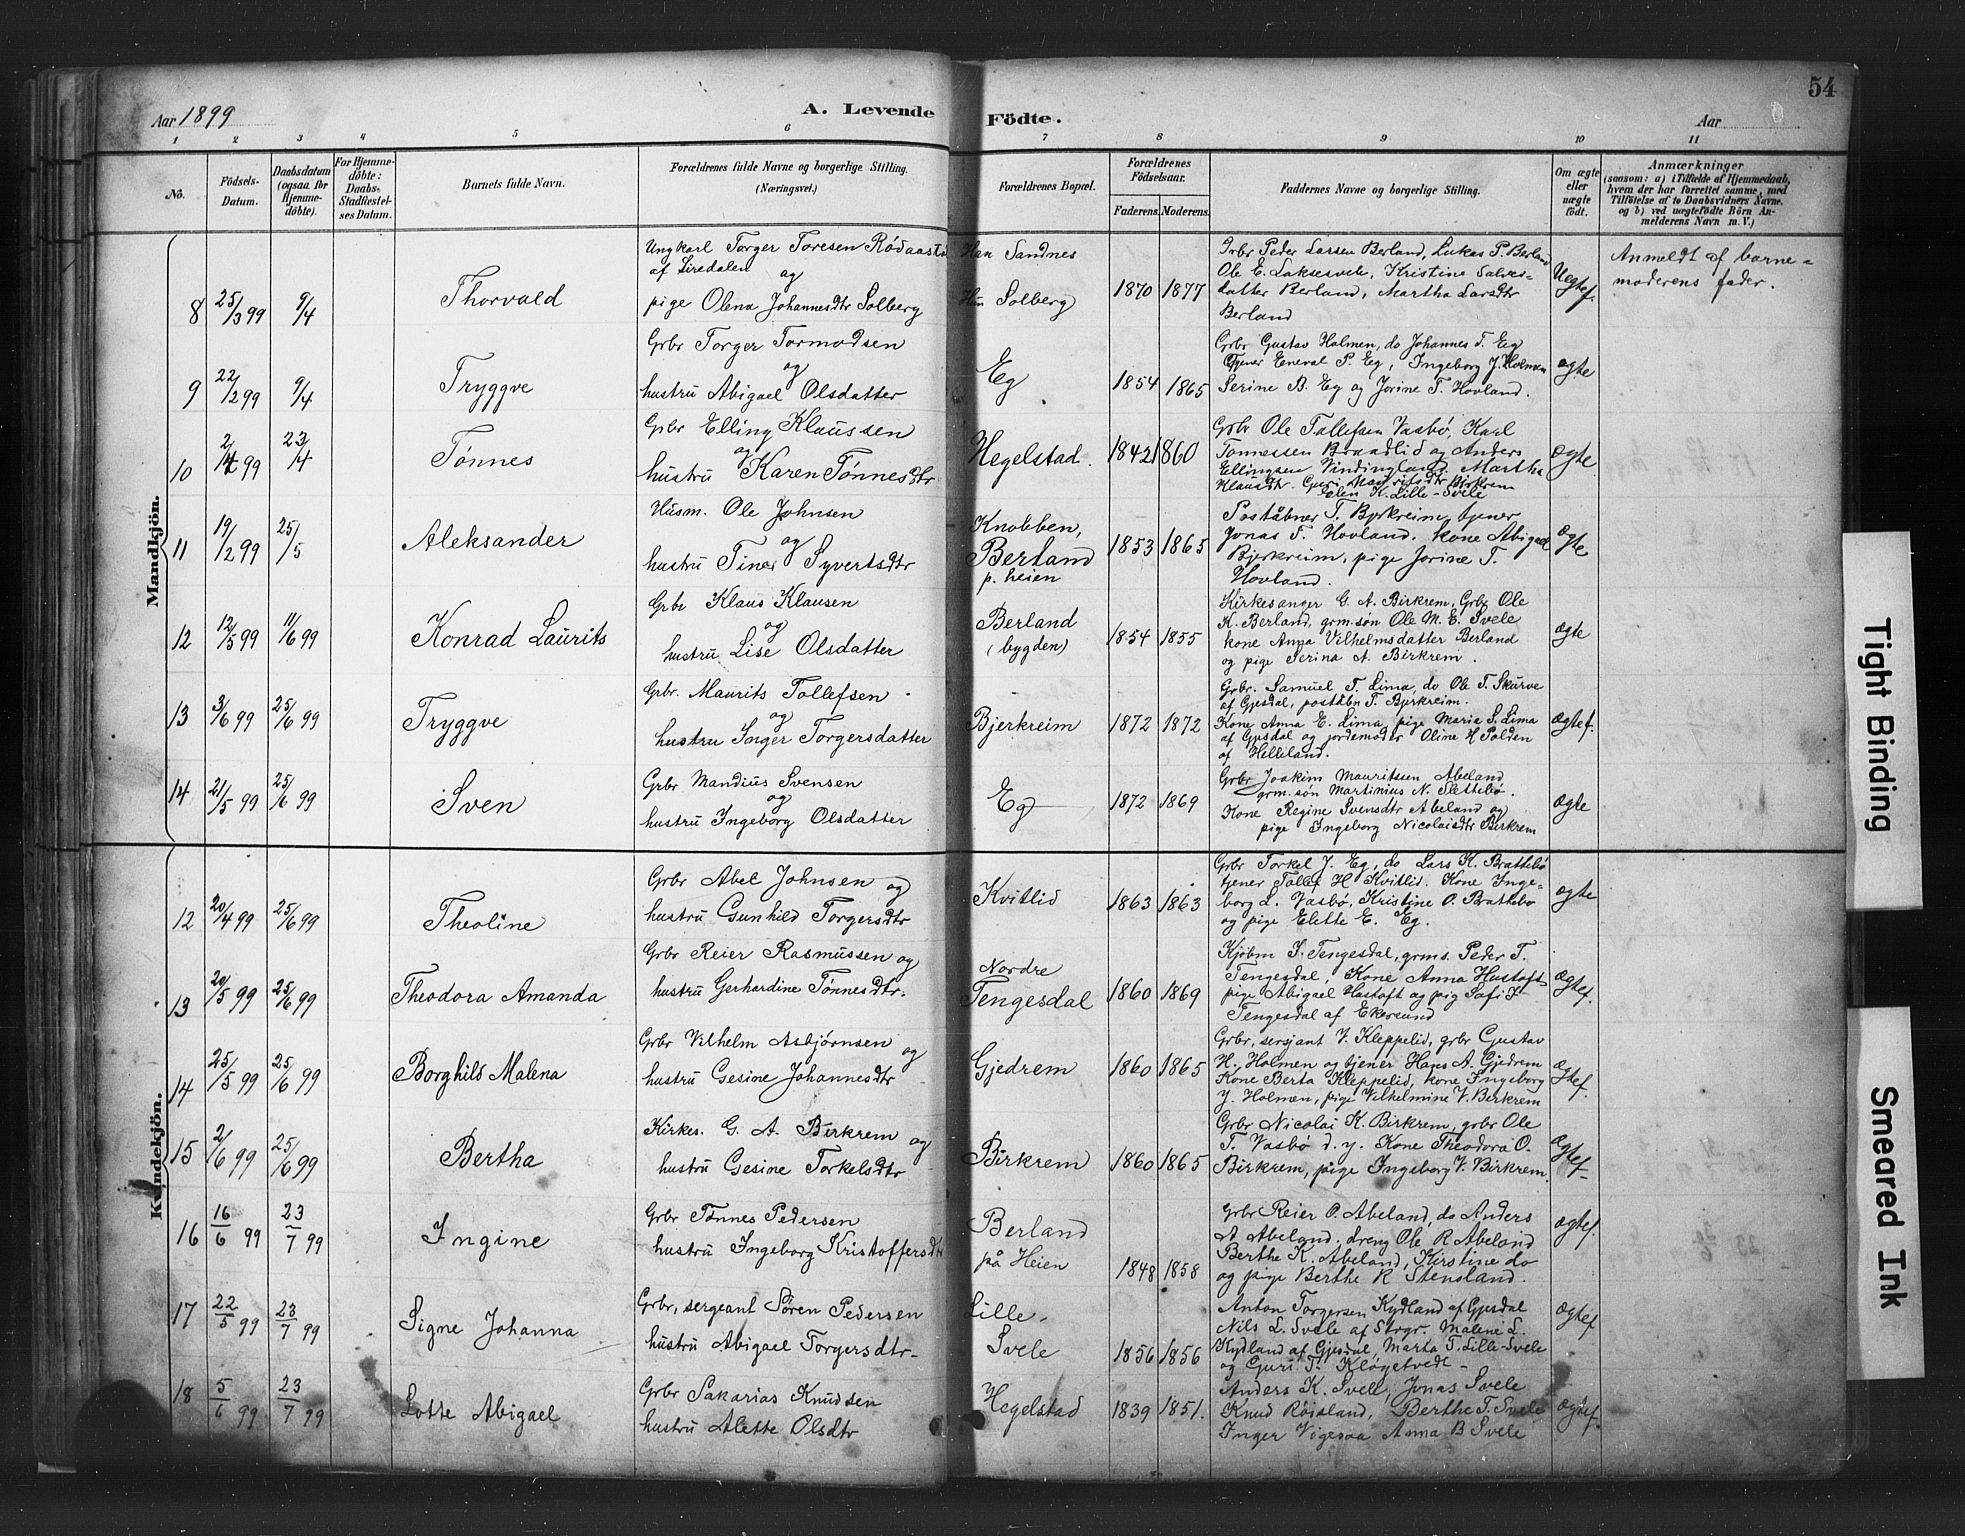 54
Aar 1899
A. Levende Födte.
Aar
1 2 3 4 5 6 7 8 9 10 11
No.
Födsels-Datum.
Daabsdatum (ogsaa for Hjemmedöbte).
For Hjemmedöbte: Daabs-Stadfæstelses Datum.
Barnets fulde Navn.
Forældrenes fulde Navne og borgerlige Stilling. (Næringsvei.)
Forældrenes Bopæl.
Forældrenes Födselsaar.
Faderens. Moderens.
Faddernes Navne og borgerlige Stilling.
Om ægte eller uægte födt.
Anmærkninger
(saasom: a) i Tilfælde af Hjemmedaab,
hvem der har forrettet samme, med
Tilföielse af to Daabsvidners Navne.
og b) ved uægtefödte Börn An-
melderens Navn m. V.)
Mandkjön.
8 25/3 99 9/4
Thorvald
Ungkarl Torger Toresen
af Siredalen og
pige Olena Johannesdtr Solberg
Han Sandnes
Hun Solberg
1870 1877
Grbr Peder Larsen Berland, Lukas P. Berland
Ole E. Laksesvele, Kristine Salves-
datter Berland, Martha Larsdtr
Berland
Uegtef.
Anmeldt af barne-
moderens fader.
9 22/2 99 9/4
Tryggve
Grbr Torger Tormodsen
og
hustru Abigael Olsdatter
Eg
1854 1865
Grbr Gustav Holmen, do Johannes T. Eg
Tjener Eneval P. Eg, Ingeborg J. Holmen
Serine B. Eg og Jorine T. Hovland.
ægte
10 2/4 99 23/4
Tønnes
Grbr Elling Klaussen
og
hustru Karen Tønnesdtr
Hegelstad.
1842 1860
Grbr Ole Tollefsen Vasbø, Karl
Tonnessen Braadlid og Anders
Ellingsen Vindingland. Martha
Klausdtr. Guri Mauritsdtr Birkrem
Elen K. Lille-Svele
ægte
11 19/2 99 25/5
Aleksander
Husm. Ole Johnsen
og
hustru Tine Syvertsdtr
Knobben,
Berland
p. heien
1853 1865
Poståbner T. Bjerkreim, tjener
Jonas T. Hovland. kone Abigael
Bjerkreim, pige Jorine T.
Hovland.
ægte
12 12/5 99 11/6 99
Konrad Laurits
Grbr Klaus Klausen
og
hustru Lise Olsdatter
Berland
(bygden)
1854 1855
Kirkesanger G. A. Birkrem, Grbr Ole
K. Berland, grm.søn Ole M. E. Svele
kone Anna Vilhelmsdatter Berland
og pige Serina A. Birkrem.
ægte
13 3/6 99 25/6 99
Tryggve
Grbr. Maurits Tollefsen
og
hustru Inger Torgersdatter
Bjerkreim
1872 1872
Grbr. Samuel T. Lima, do Ole T. Skurve
af Gjesdal, poståbn T. Bjerkreim.
Kone Anna E. Lima, pige Maria S. Lima
af Gjesdal og jordemoder Oline H Polden
af Helleland.
ægtef.
14 21/5 99 25/6 99
Sven
Grbr Mandius Svensen
og
hustru Ingeborg Olsdatter
Eg
1872 1869
Grbr Joakim Mauritssen Abeland
grm.søn Martinius N. Slettebø.
Kone Regine Svensdtr Abeland og
pige Ingeborg Nicolaisdtr Birkrem
ægte
Kvindekjön.
12 20/4 99 25/6 99
Theoline
Grbr Abel Johnsen og
hustru Gunhild Torgersdtr
Kvitlid
1863 1863
Grbr Torkel J. Eg, do Lars K. Brattebø
tjener Tollef H Kvitlid. Kone Inge-
borg L. Vasbø, Kristine O. Brattebø
og pige Elette E. Eg.
ægte
13 20/5 99 25/6 99
Theodora Amanda
Grbr Reier Rasmussen og
hustru Gerhardine Tønnesdtr.
Nordre
Tengesdal
1860 1869
Kjøbm S. Tengesdal, grms. Peder T.
Tengesdal, Kone Anna Hustoft
pige Abigael Hustoft og pig Sofi J
Tengesdal af Ekersund
ægtef.
14 25/5 99 25/6 99
Borghild Malena
Grbr Vilhelm Asbjørnsen og
hustru Gesine Johannesdtr
Gjedrem
1860 1865
Grbr, sersjant V. Kleppelid, grbr Gustav
H. Holmen og tjener Hans A. Gjedrem
Kone Berta Kleppelid, kone Ingeborg
J. Holmen, pige Vilhelmine V. Birkrem
ægtef.
15 2/6 99 25/6 99
Bertha
Kirkes. G. A. Birkrem og
hustru Gesine Torkelsdtr
Birkrem
1860 1865
Grbr Nicolai K. Birkrem, grbr Ole
T. Vasbø d. y. Kone Theodora O.
Birkrem, pige Ingeborg V. Birkrem.
ægtef.
16 16/6 99 23/7 99
Ingine
Grbr Tønnes Pedersen
hustru Ingeborg Kristoffersdtr
Berland
på Heien
1848 1858
Grbr Reier O. Abeland, do Anders
A Abeland. dreng Ole R Abeland
Berthe K. Abeland, Kirstine do
og pige Berthe R Stensland.
ægtef.
17 22/5 99 23/7 99
Signe Johanna
Grbr, sergeant Søren Pedersen
hustru Abigael Torgersdtr
Lille-
Svele
1856 1856
Anton Torgersen Kydland af Gjesdal
Nils L. Svele af Strgr. Malene L.
Kydland af Gjesdal, Marta T. Lille-Svele
og Guri T. Kløgetvedt
ægtef.
18 5/6 99 23/7 99
Lotte Abigael
Grbr Sakarias Knudsen
hustru Alette Olsdtr
Hegelstad
1839 1851.
Anders K. Svele, Jonas Svele
Knud Røisland, Berthe T. Svele
Inger Vigesaa Anna B Svele
ægtef.
Tight Binding
Smeared Ink